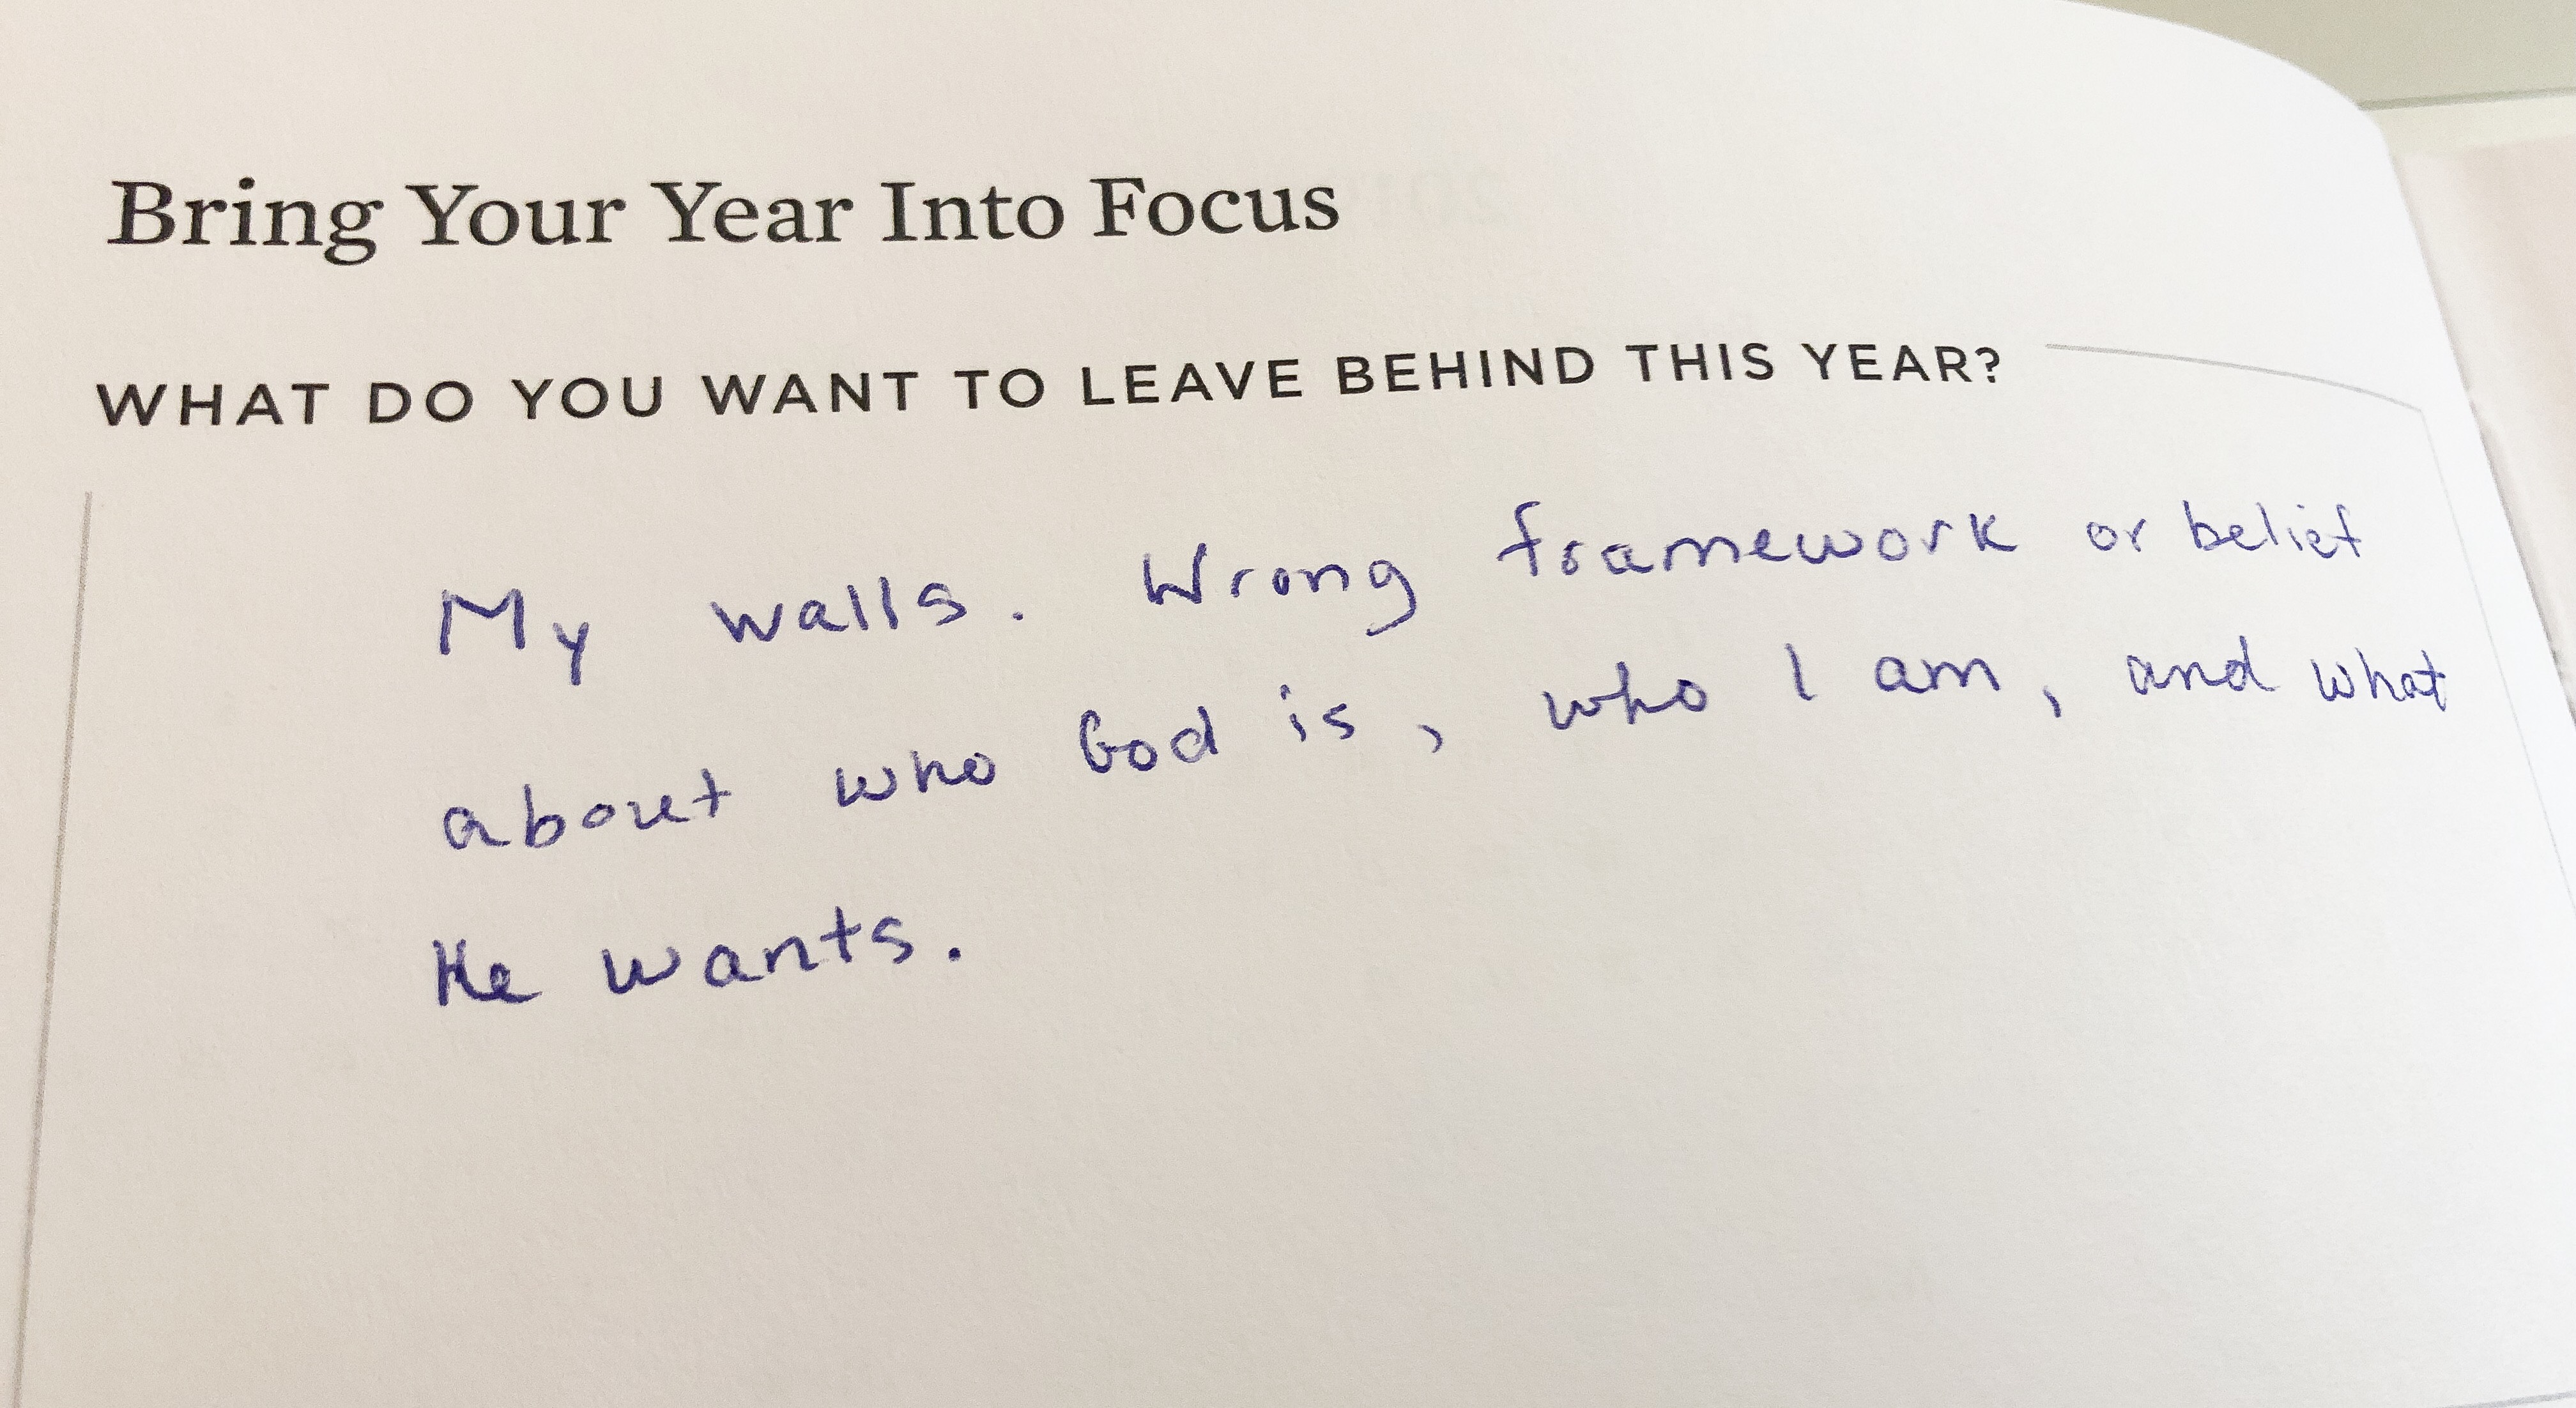 Bring Your Year Into Focus
WHAT DO YOU WANT TO LEAVE BEHIND THIS YEAR?
My walls. Wrong framework or belief
about who God is, who I am, and what
He wants.